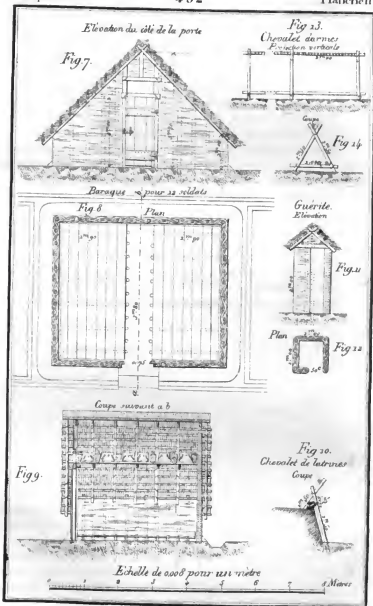 Elévation du côté de la porte
Fig. 7.
Fig 13.
Chevalet d'armes
Projection verticale
Coupe
Fig 14
Baraque pour 12 soldats
Fig. 8
Plan
2m90
2m90
0.75
Guérite.
Elévation
Fig. 11
Plan
Fig 12
Coupe suivant a b
Fig. 9.
Fig. 10.
Chevalet de latrines
Coupe
Echelle de 0,008 pour un mètre
0 1 2 3 4 5 6 7 8 Mètres